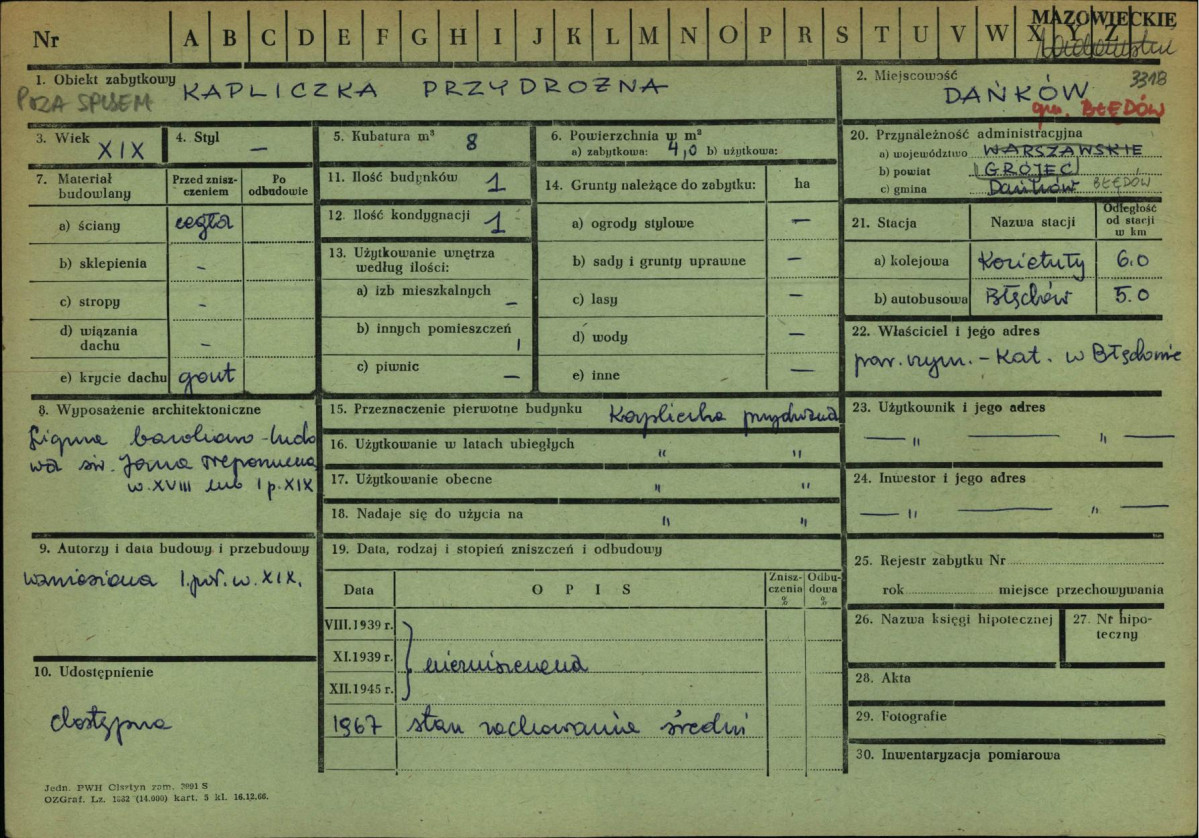 MAZOWIECKIE
Nr A B C D E F G H I J K L M N O P R S T U V W X Y Z
1. Obiekt zabytkowy KAPLICZKA PRZYDROŻNA
POZA SPISEM
2. Miejscowość 3318
DAŃKÓW
gm. BŁĘDÓW
3. Wiek XIX
4. Styl —
5. Kubatura m³ 8
6. Powierzchnia w m²
a) zabytkowa: 4,0 b) użytkowa:
7. Materiał budowlany
Przed zniszczeniem
Po odbudowie
a) ściany cegła
b) sklepienia -
c) stropy -
d) wiązania dachu -
e) krycie dachu gont
8. Wyposażenie architektoniczne
figura barokowo-ludo
wa św. Jana Nepomucena
w. XVIII lub I p. XIX
9. Autorzy i data budowy i przebudowy
wzniesiona I. poł. w. XIX.
10. Udostępnienie
dostępna
11. Ilość budynków 1
12. Ilość kondygnacji 1
13. Użytkowanie wnętrza
według ilości:
a) izb mieszkalnych —
b) innych pomieszczeń 1
c) piwnic —
14. Grunty należące do zabytku: ha
a) ogrody stylowe —
b) sady i grunty uprawne —
c) lasy —
d) wody —
e) inne —
15. Przeznaczenie pierwotne budynku Kapliczka przydrożna
16. Użytkowanie w latach ubiegłych " "
17. Użytkowanie obecne " "
18. Nadaje się do użycia na " "
19. Data, rodzaj i stopień zniszczeń i odbudowy
Data OPIS Zniszczenia % Odbudowa %
VIII.1939 r.
XI.1939 r. niezniszczona
XII.1945 r.
1967 stan zachowania średni
20. Przynależność administracyjna
a) województwo WARSZAWSKIE
b) powiat GRÓJEC
c) gmina Dańków BŁĘDÓW
21. Stacja Nazwa stacji Odległość od stacji w km
a) kolejowa Kozietuły 6.0
b) autobusowa Błędów 5.0
22. Właściciel i jego adres
par. rzym. - Kat. w Błędowie
23. Użytkownik i jego adres
— " — " —
24. Inwestor i jego adres
— " — " —
25. Rejestr zabytku Nr
rok miejsce przechowywania
26. Nazwa księgi hipotecznej
27. Nr hipoteczny
28. Akta
29. Fotografie
30. Inwentaryzacja pomiarowa
Jedn. PWH Olsztyn zam. 3991 S
OZGraf. Lz. 1032 (14.000) kart. 5 kl. 16.12.66.